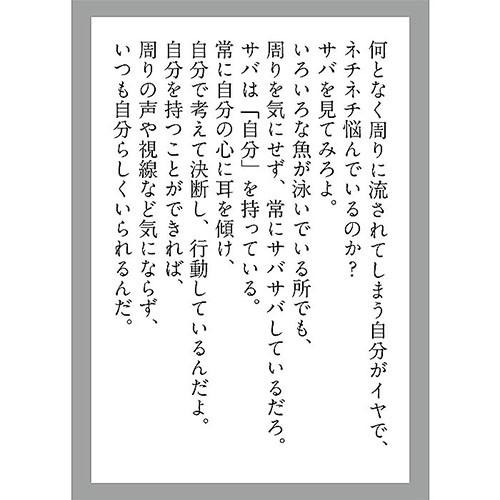 何となく周りに流されてしまう自分がイヤで、
ネチネチ悩んでいるのか？
サバを見てみろよ。
いろいろな魚が泳いでいる所でも、
周りを気にせず、常にサバサバしているだろ。
サバは「自分」を持っている。
常に自分の心に耳を傾け、
自分で考えて決断し、行動しているんだよ。
自分を持つことができれば、
周りの声や視線など気にならず、
いつも自分らしくいられるんだ。